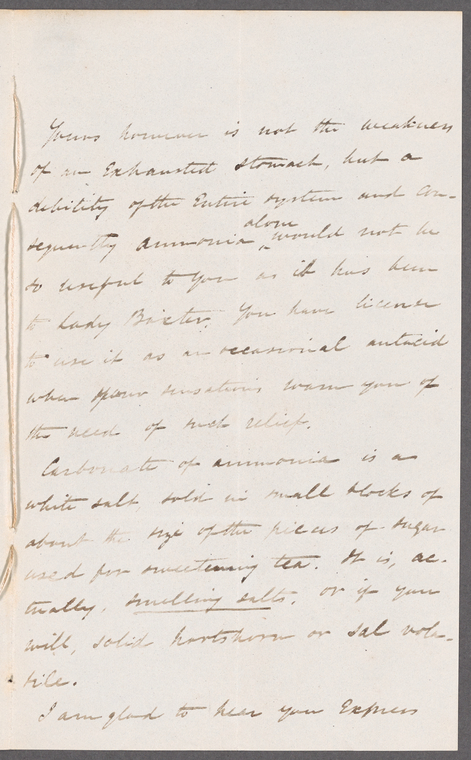 Yours however is not the weakness
of an Exhausted stomach, but a
debility of the Entire system and con-
sequently ammonia alone would not be
so useful to you as it has been
to Lady Baxter. You have license
to use it as an occasional antacid
when your sensations warn you of
the need of such relief.
Carbonate of ammonia is a
white salt sold in small blocks of
about the size of the pieces of sugar
used for sweetening tea. It is, ac-
tually, smelling salts, or if you
will, solid hartshorn or sal vola-
tile.
I am glad to hear you Express